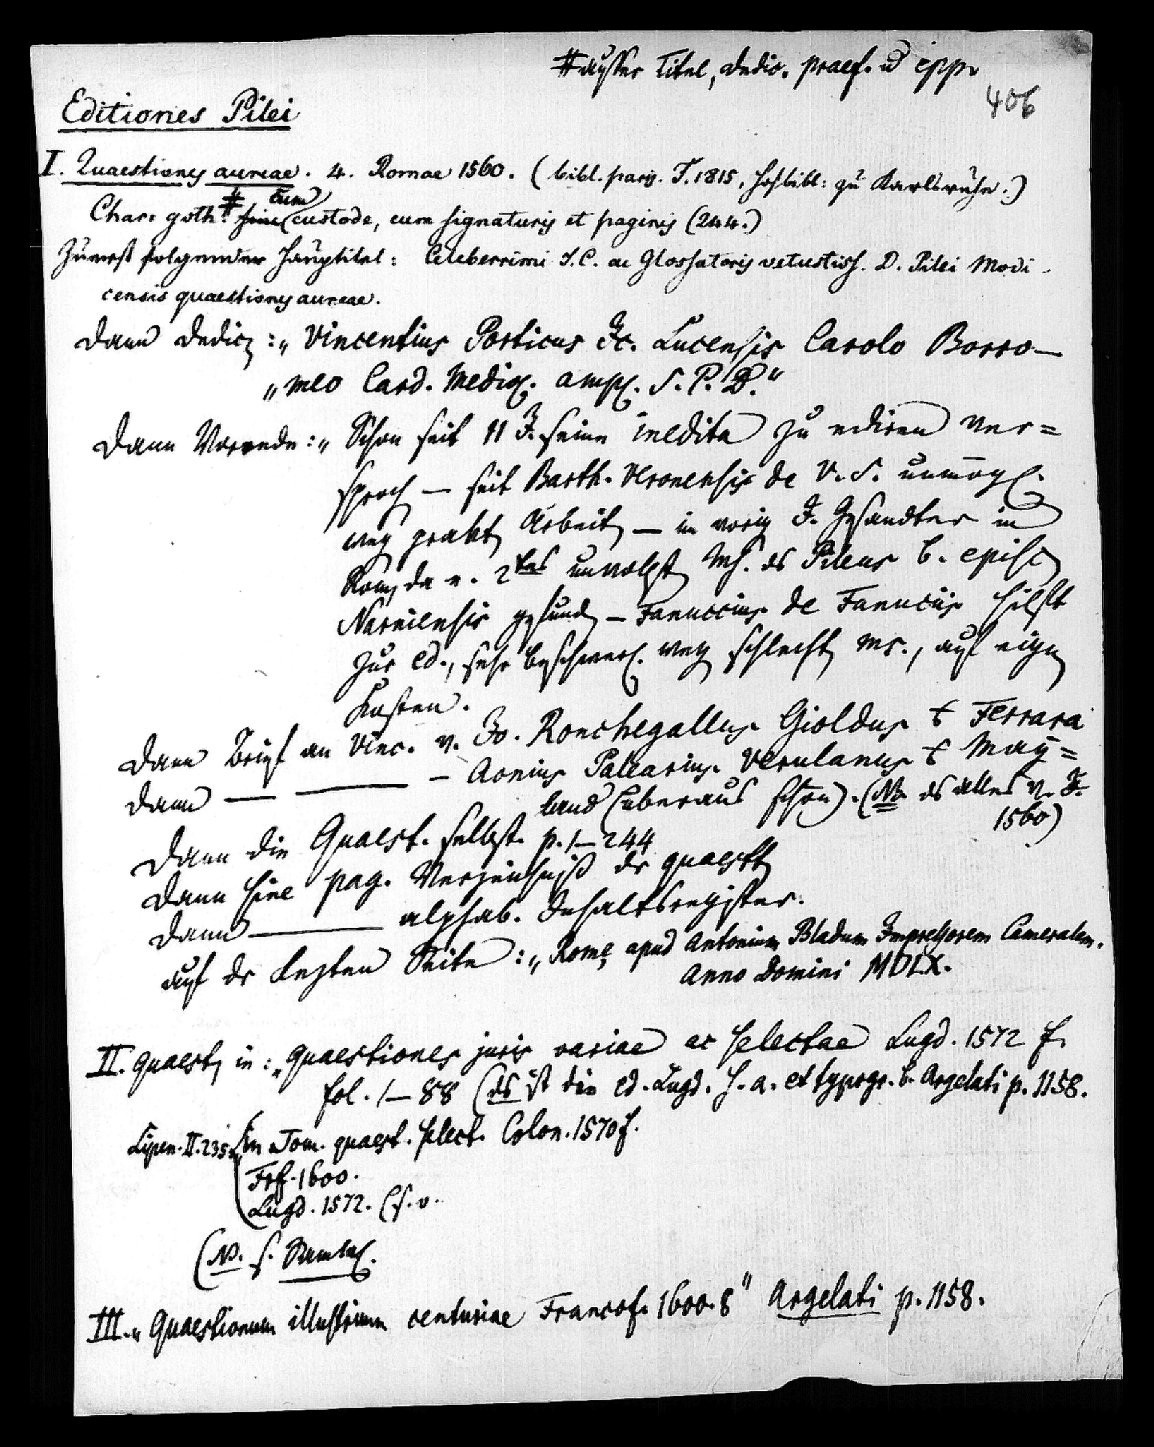 # ausser Titel, dedic. praef. u epp.
406
Editiones Pilei
I. Quaestiones aureae. 4. Romae 1560. (bibl. paris. F. 1815, Hofbibl: zu Karlsruhe.)
# cum
Char. goth. sine custode, cum signaturis et paginis (244.)
Zuerst folgender Hauptitel: Celeberrimi I.C. ac Glossatoris vetustiss. D. Pilei Modi-
censis quaestiones aureae.
Dann Dedic: „Vincentius Porticus Jc. Lucensis Carolo Borro-
„meo Card. Medio. ampl. S. P. D."
Dann Vorrede: „Schon seit 11 J. seine inedita zu ediren ver=
sproch – seit Barth. Veronensis de V. S. unmögl.
weg prakt Arbeit – in vorig J. Gesandter in
Rom, da e. 2tes unvollst Ms. des Pileus b. episc
Narniensis gefund – Fanuccius de Fanuciis hilft
zur ed., sehr beschwerl. weg schlecht Ms., auf eign
Kosten.
Dann Brief an Vinc. v. Jo. Ronchegallus Gioldus Ferrara
Dann — — – Aonius Palearius Verulanus May=
land (überaus schön). (NB ds alles v. J.
1560)
Dann die Quaest. selbst. p. 1–244
Dann sine pag. Verzeichniß dr quaestt
Dann — alphab. Inhaltsregister.
auf dr letzten Seite: „Rome, apud Antonium Bladum Impressorem Cameralem.
Anno Domini MDLX.
II. Quaest, in: „Quaestiones juris variae ac selectae Lugd. 1572 f.
fol. 1–88 (ds ist die ed. Lugd. s. a. et typogr. b. Argelati p. 1158.
Lipen. II. 235. in Tom. quaest. select. Colon. 1570 f.
Frf. 1600.
Lugd. 1572. (s. o.
(NB. s.
III. „Quaestionum illustrium centuriae Francof. 1600. 8" Argelati p. 1158.